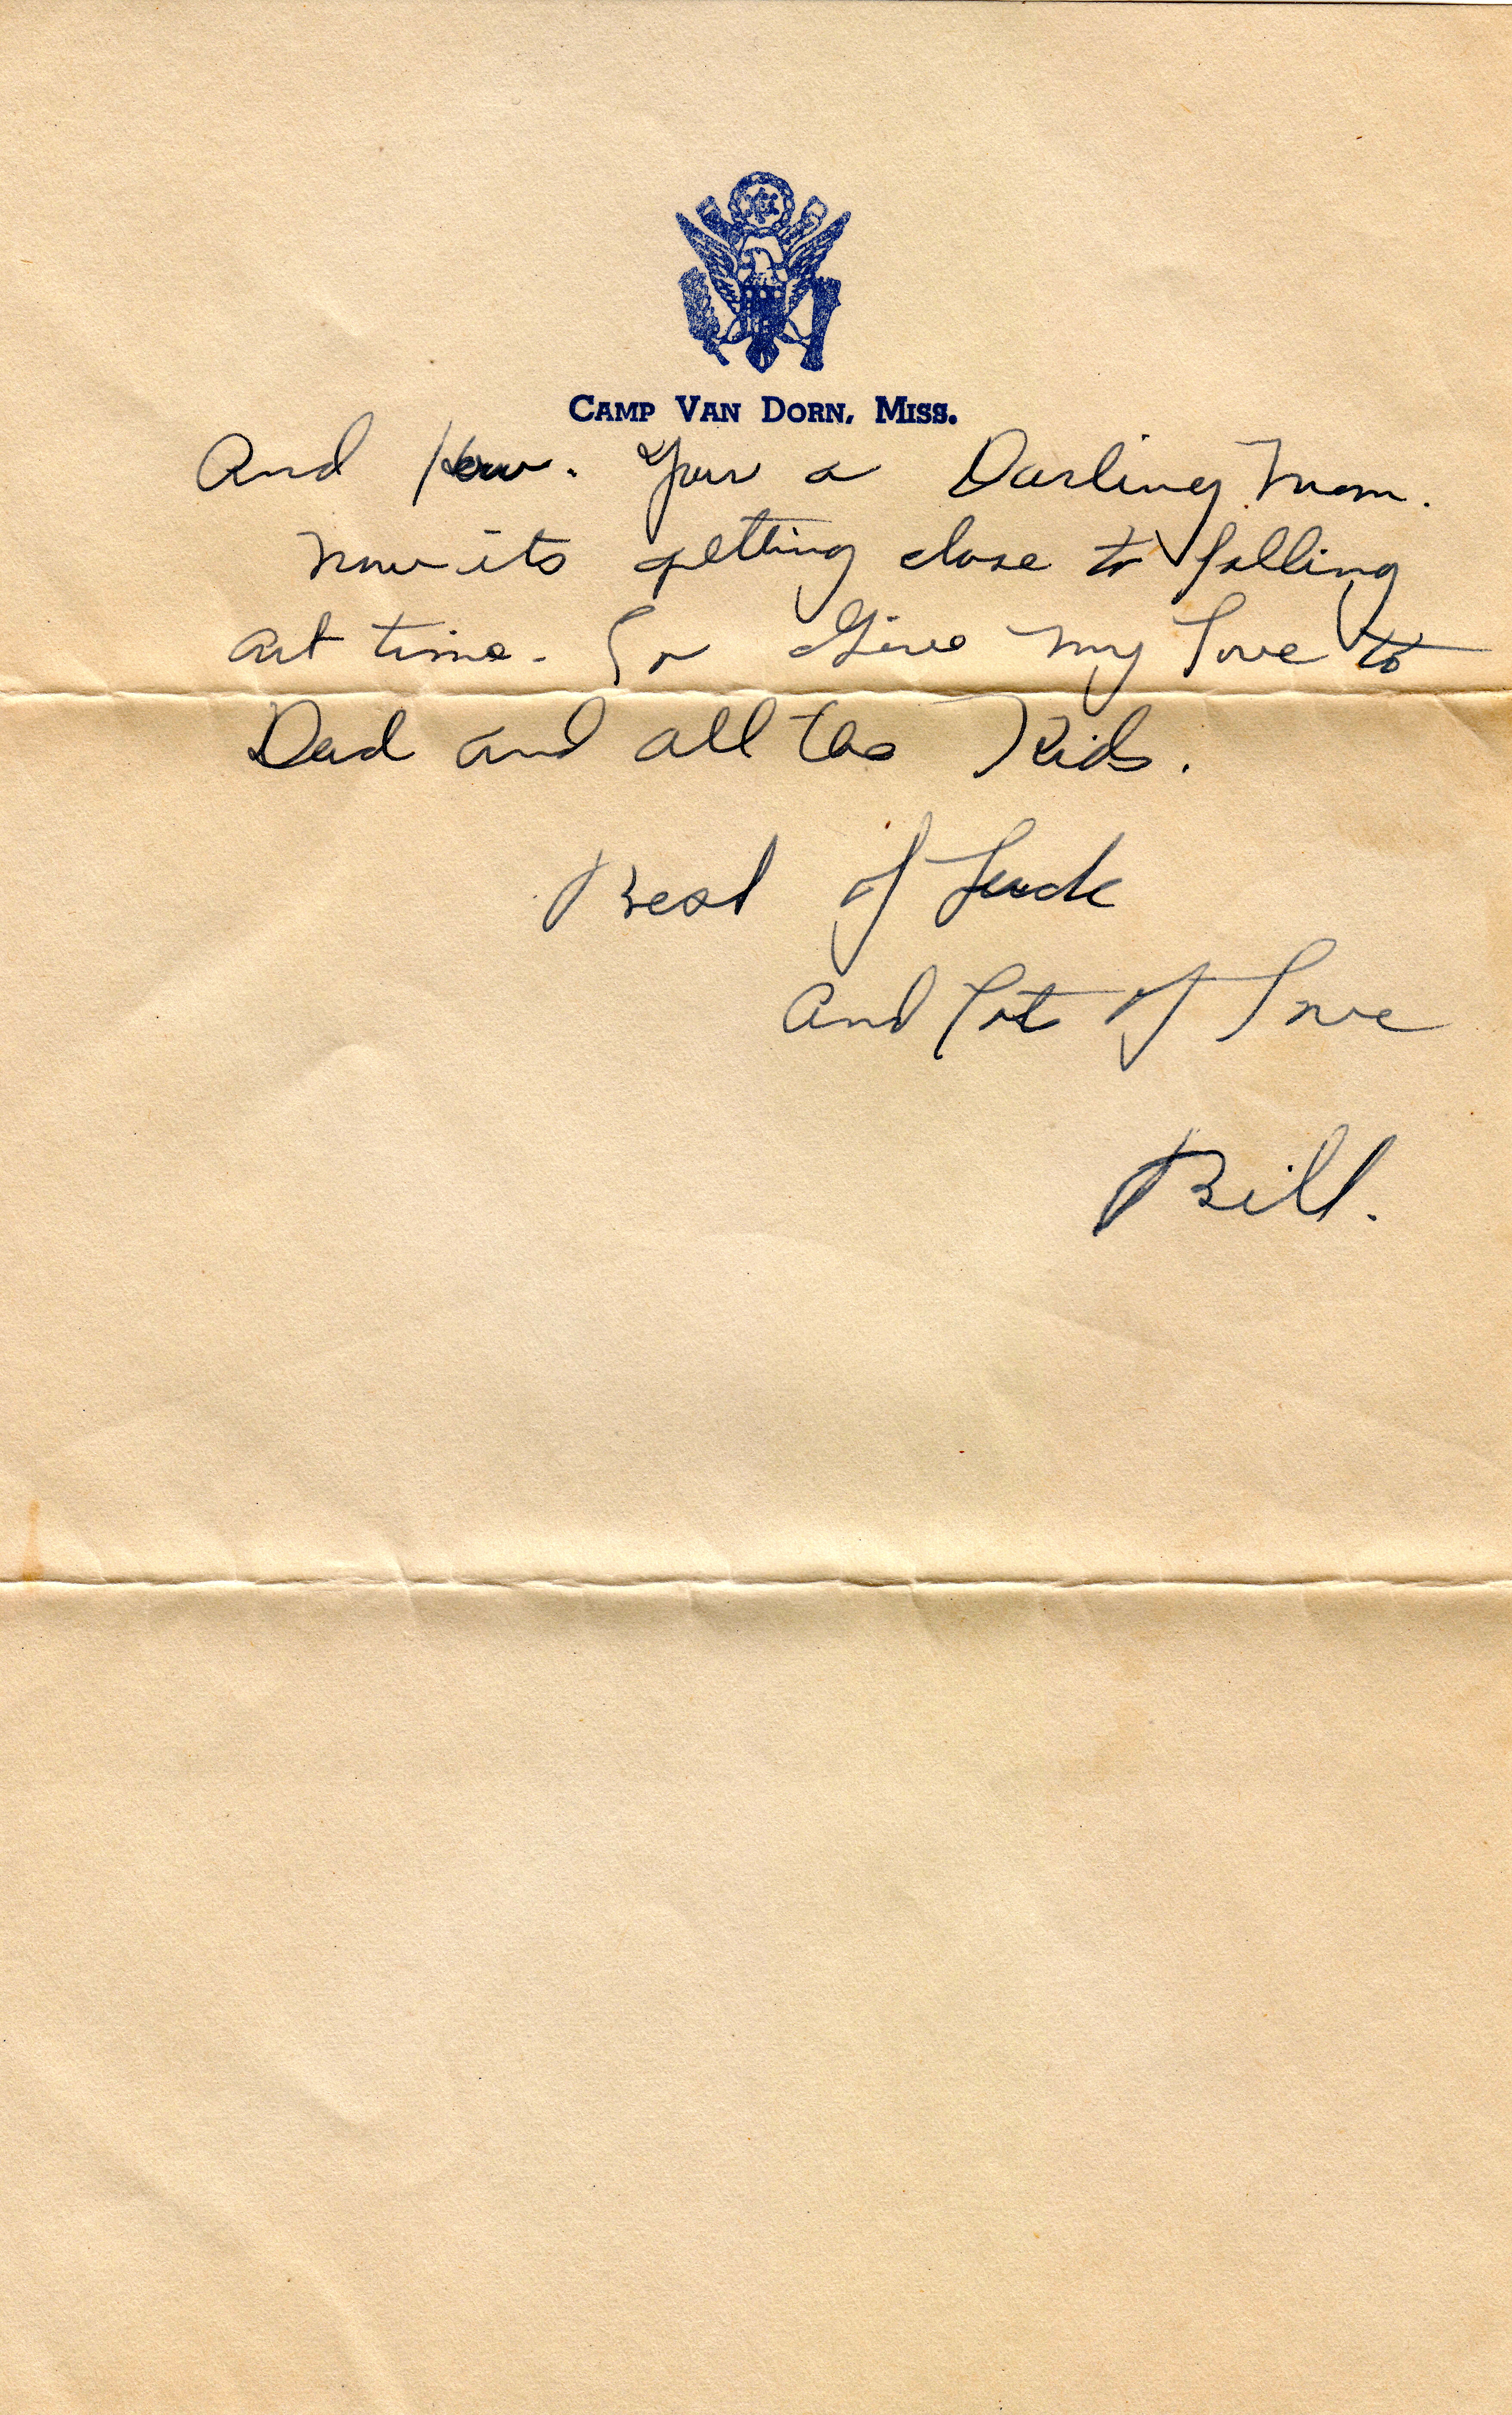 CAMP VAN DORN, MISS.
And How. Your a Darling Mom.
Now its getting close to falling
out time. So Give my love to
Dad and all the Kids.
Best of Luck
And lot of Love
Bill.